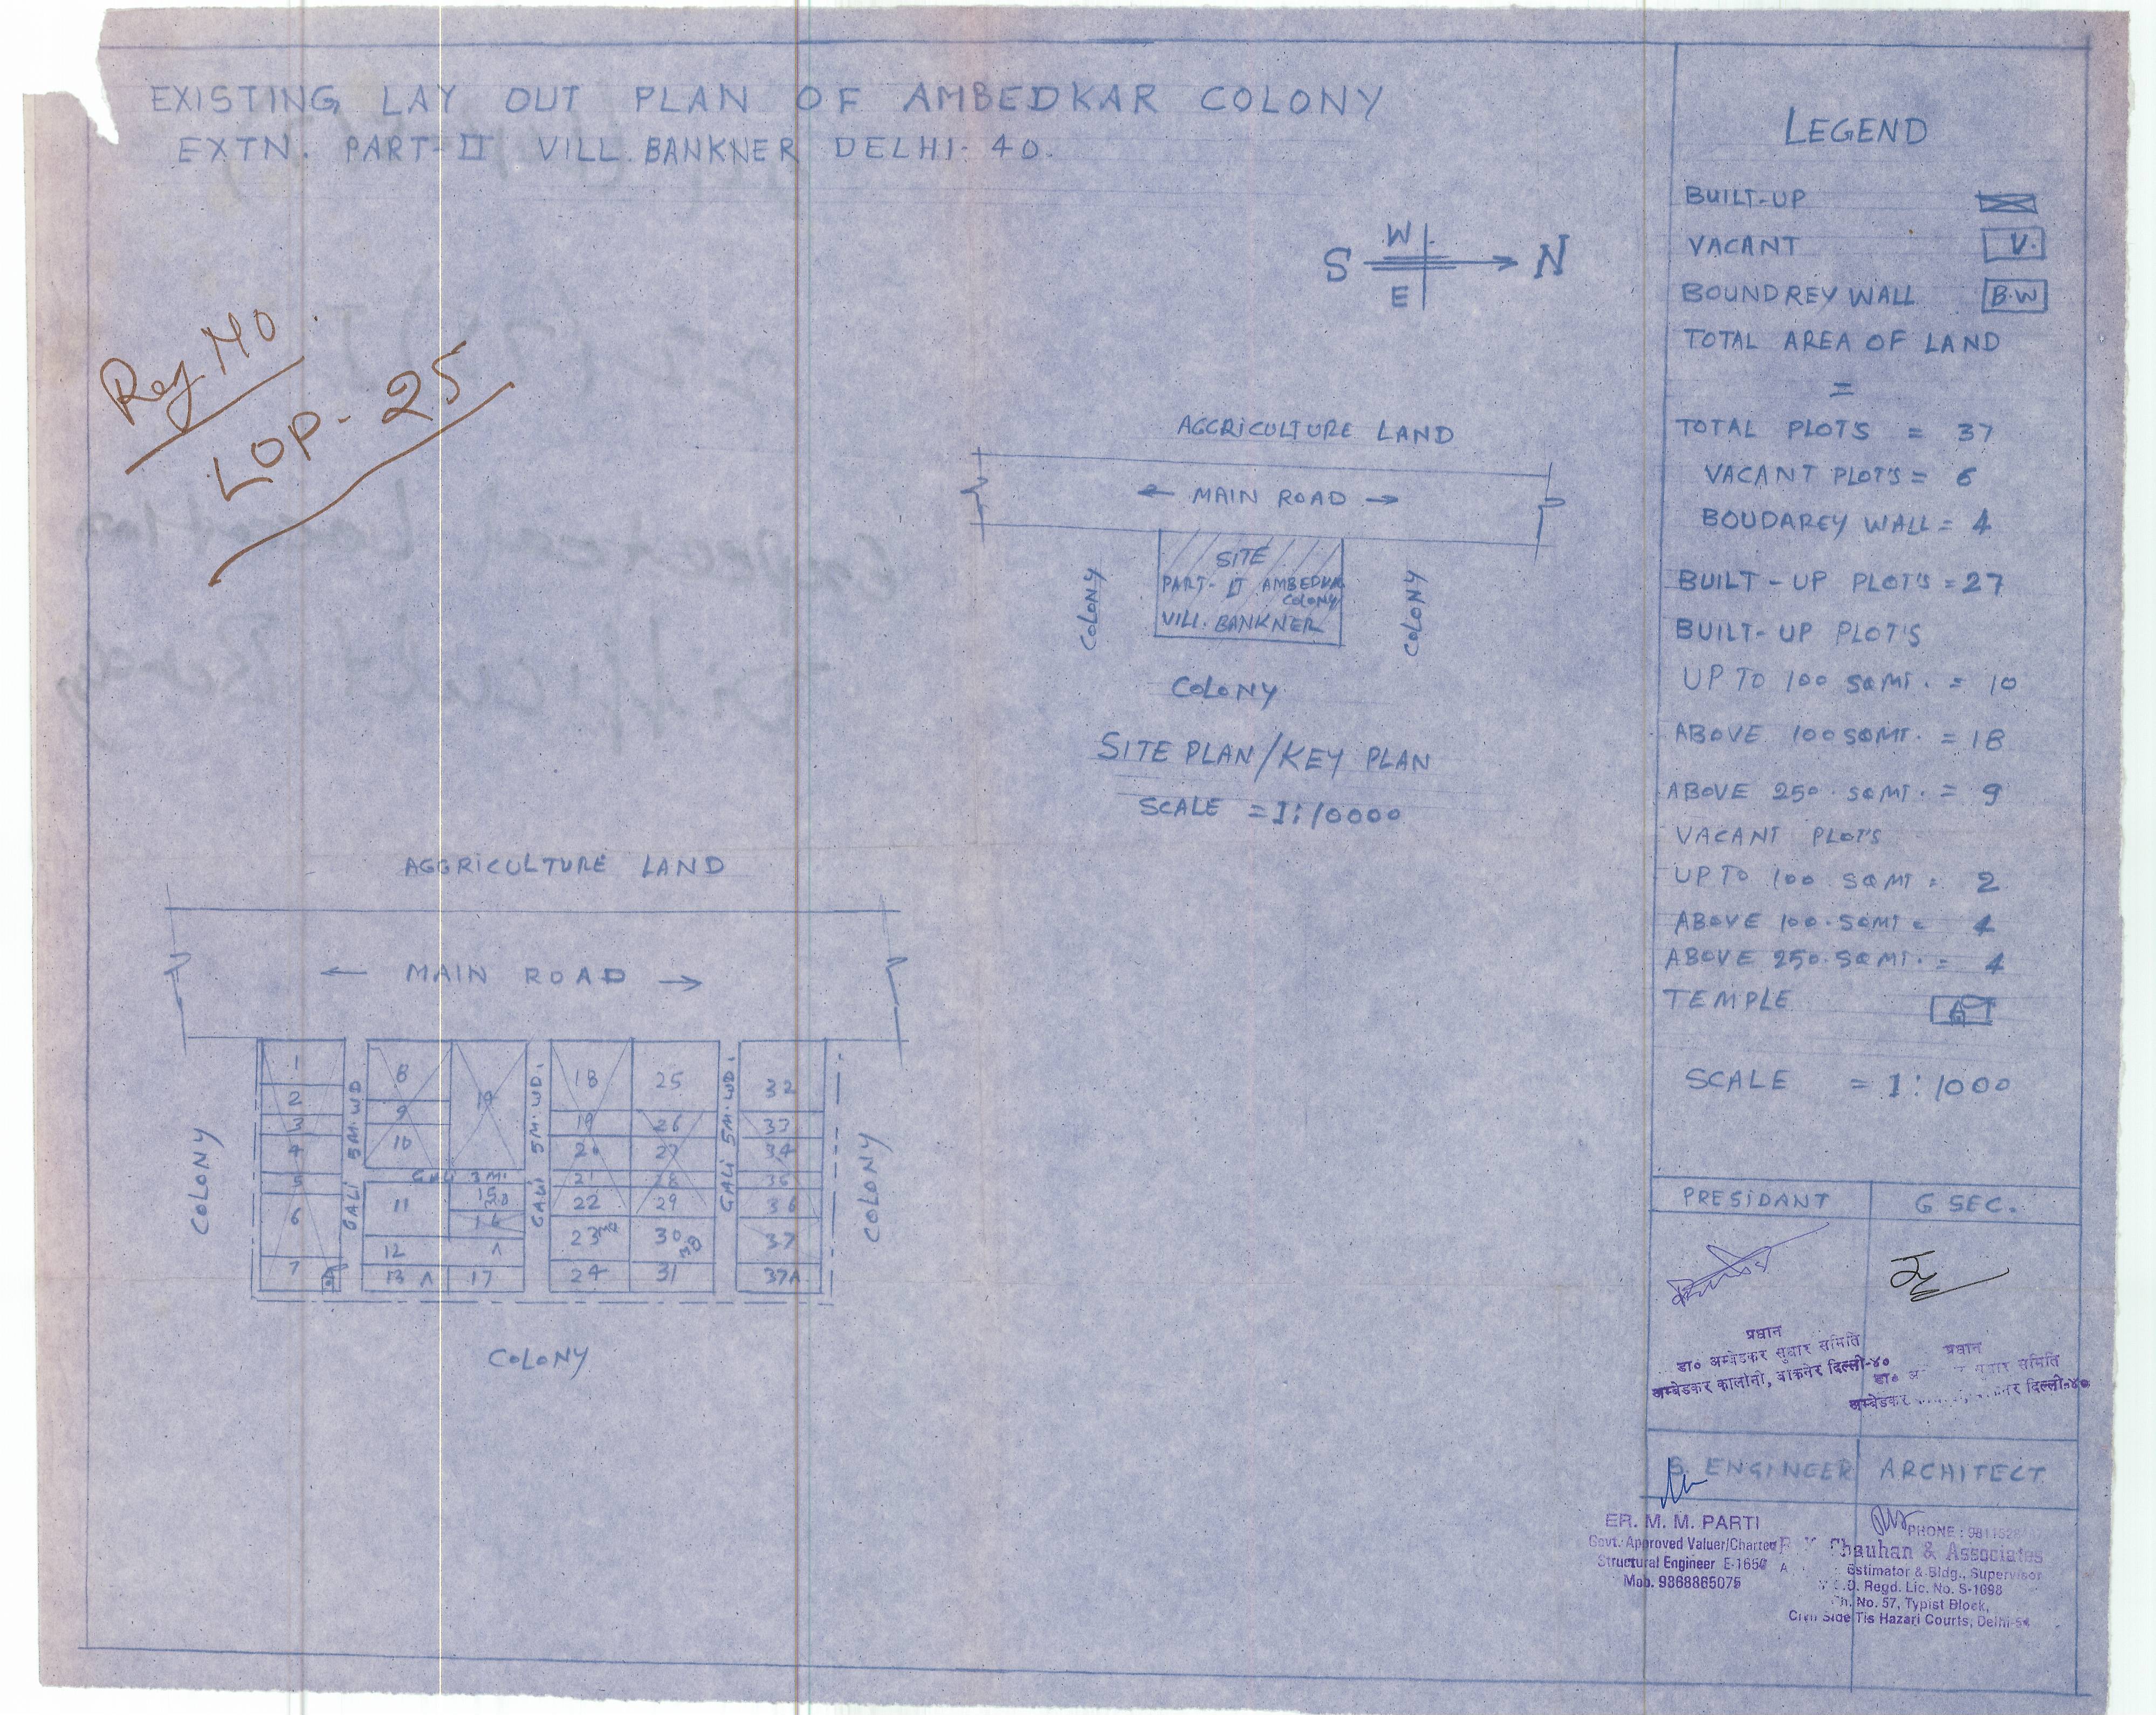 EXISTING LAY OUT PLAN OF AMBEDKAR COLONY
EXTN. PART-II VILL. BANKNER DELHI-40.
Reg No
LOP-25
W
S N
E
AGGRICULTURE LAND
← MAIN ROAD →
SITE
PART-II AMBEDKR
COLONY
VILL. BANKNER
COLONY
COLONY
COLONY
SITE PLAN/KEY PLAN
SCALE =1:10000
AGGRICULTURE LAND
← MAIN ROAD →
1
2
3
4
5
6
7
GALI 5M.WD
8
9
10
GALI 3 MT
11
12
13
15
16
17
GALI 5M.WD.
18
19
20
21
22
23
24
25
26
27
28
29
30
31
GALI 5M.WD.
32
33
34
35
36
37
37A
COLONY
COLONY
COLONY
LEGEND
BUILT-UP
VACANT V.
BOUNDREY WALL B.W
TOTAL AREA OF LAND
=
TOTAL PLOTS = 37
VACANT PLOT'S = 6
BOUDAREY WALL = 4
BUILT-UP PLOT'S = 27
BUILT-UP PLOT'S
UP TO 100 SQMT. = 10
ABOVE 100 SQMT. = 18
ABOVE 250. SQMT. = 9
VACANT PLOT'S
UP TO 100 SQMT = 2
ABOVE 100. SQMT = 4
ABOVE 250. SQMT. = 4
TEMPLE
SCALE = 1:1000
PRESIDANT G SEC.
प्रधान
डा० अम्बेडकर सुधार समिति
अम्बेडकर कालोनी, बांकनेर दिल्ली-४०
प्रधान
डा० सुधार समिति
अम्बेडकर दिल्ली-४०
S. ENGINEER ARCHITECT
ER. M. M. PARTI
Govt. Approved Valuer/Charted
Structural Engineer E-1650
Mob. 9868865075
PHONE :
Chauhan & Associates
Estimator & Bldg., Supervisor
Regd. Lic. No. S-1098
Ch. No. 57, Typist Block,
Civil Side Tis Hazari Courts, Delhi-54